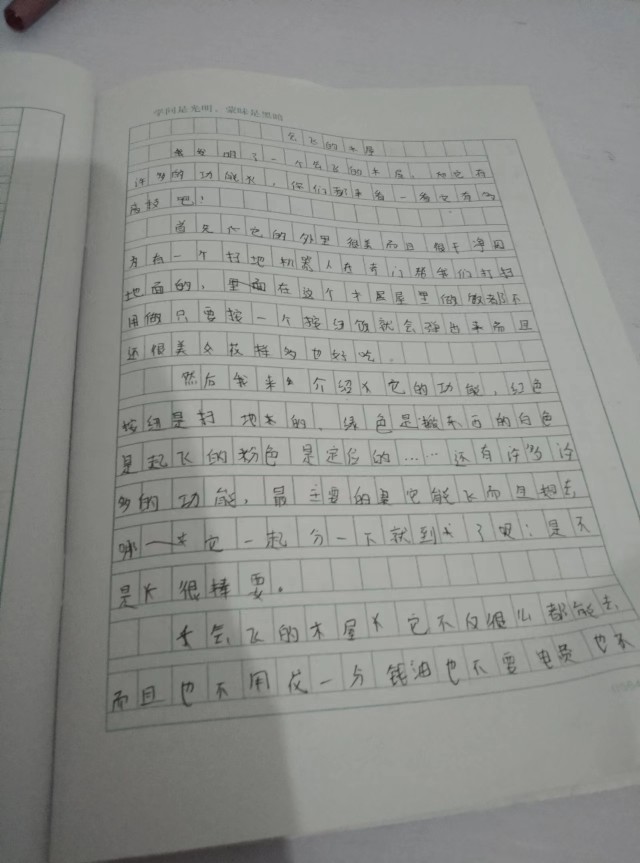 学问是光明，蒙昧是黑暗
会飞的木屋
我发明了一个会飞的木屋，知它有
许多的功能，你们都来看一看它有多
高级吧！
首先它的外里很美而且很干净因
为有一个扫地机器人在专门帮我们打扫
地面的，里面在这个木屋屋里做饭都不
用做只要按一个按钮饭就会弹出来而且
还很美女花样多也好吃。
然后我来介绍它的功能，红色
按钮是扫地的，绿色是搬东西的白色
是起飞的粉色是定位的……还有许多许
多的功能，最主要的是它能飞而且想去
哪一一起分一下就到了吧：是不
是很棒要。
会飞的木屋它不仅很么都能去，
而且也不用花一分钱油也不要电费也不